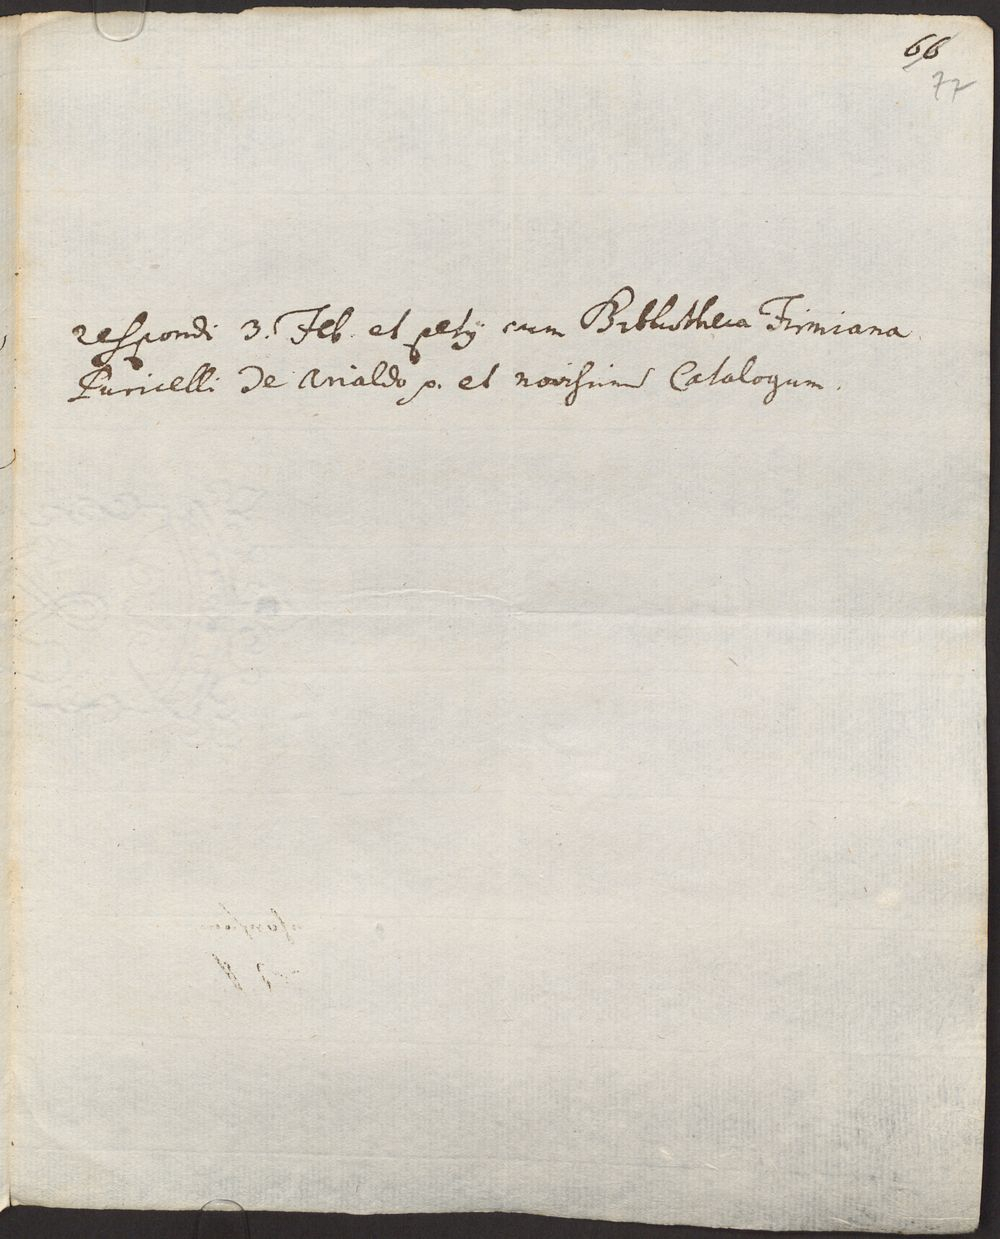 66
77
respondi 3. Feb. et petij cum Bibliotheca Firmiana
Puricelli de Arialdo p. et novissim Catalogum.